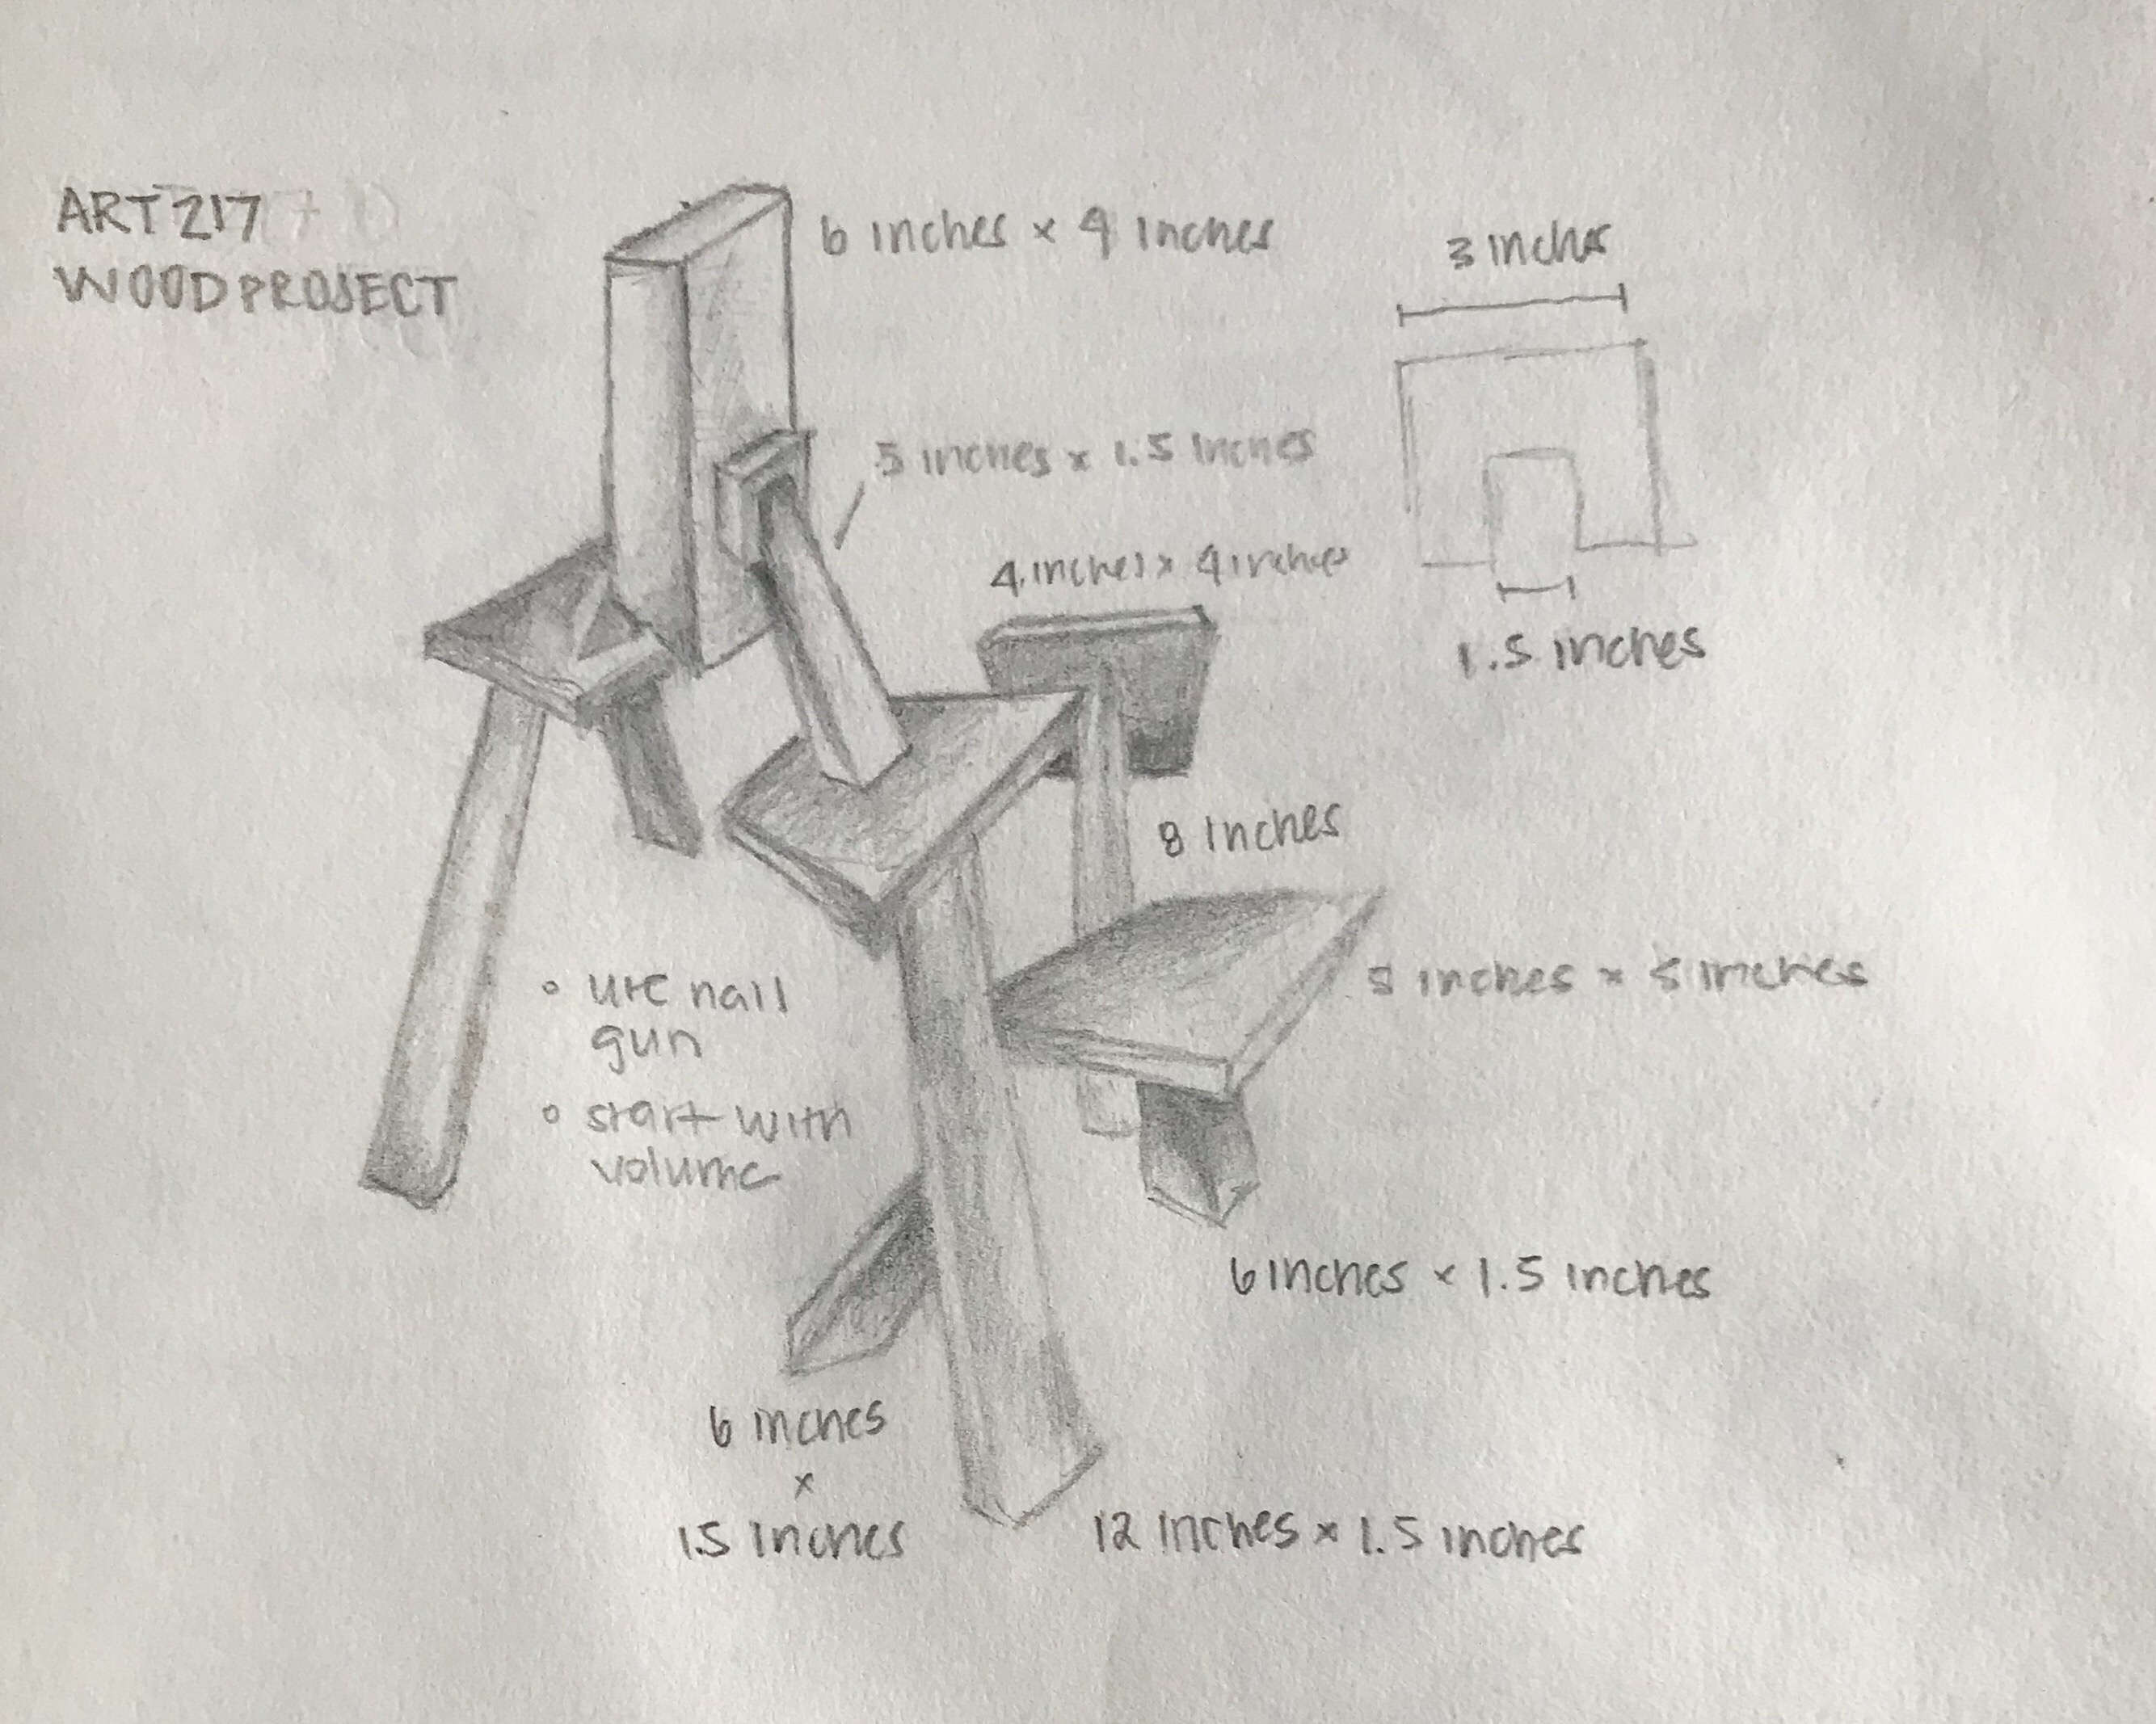 ART 217
WOOD PROJECT
6 inches x 4 inches
3 inches
5 inches x 1.5 inches
4 inches x 4 inches
1.5 inches
8 inches
5 inches x 5 inches
• use nail
gun
• start with
volume
6 inches x 1.5 inches
6 inches
x
1.5 inches
12 inches x 1.5 inches